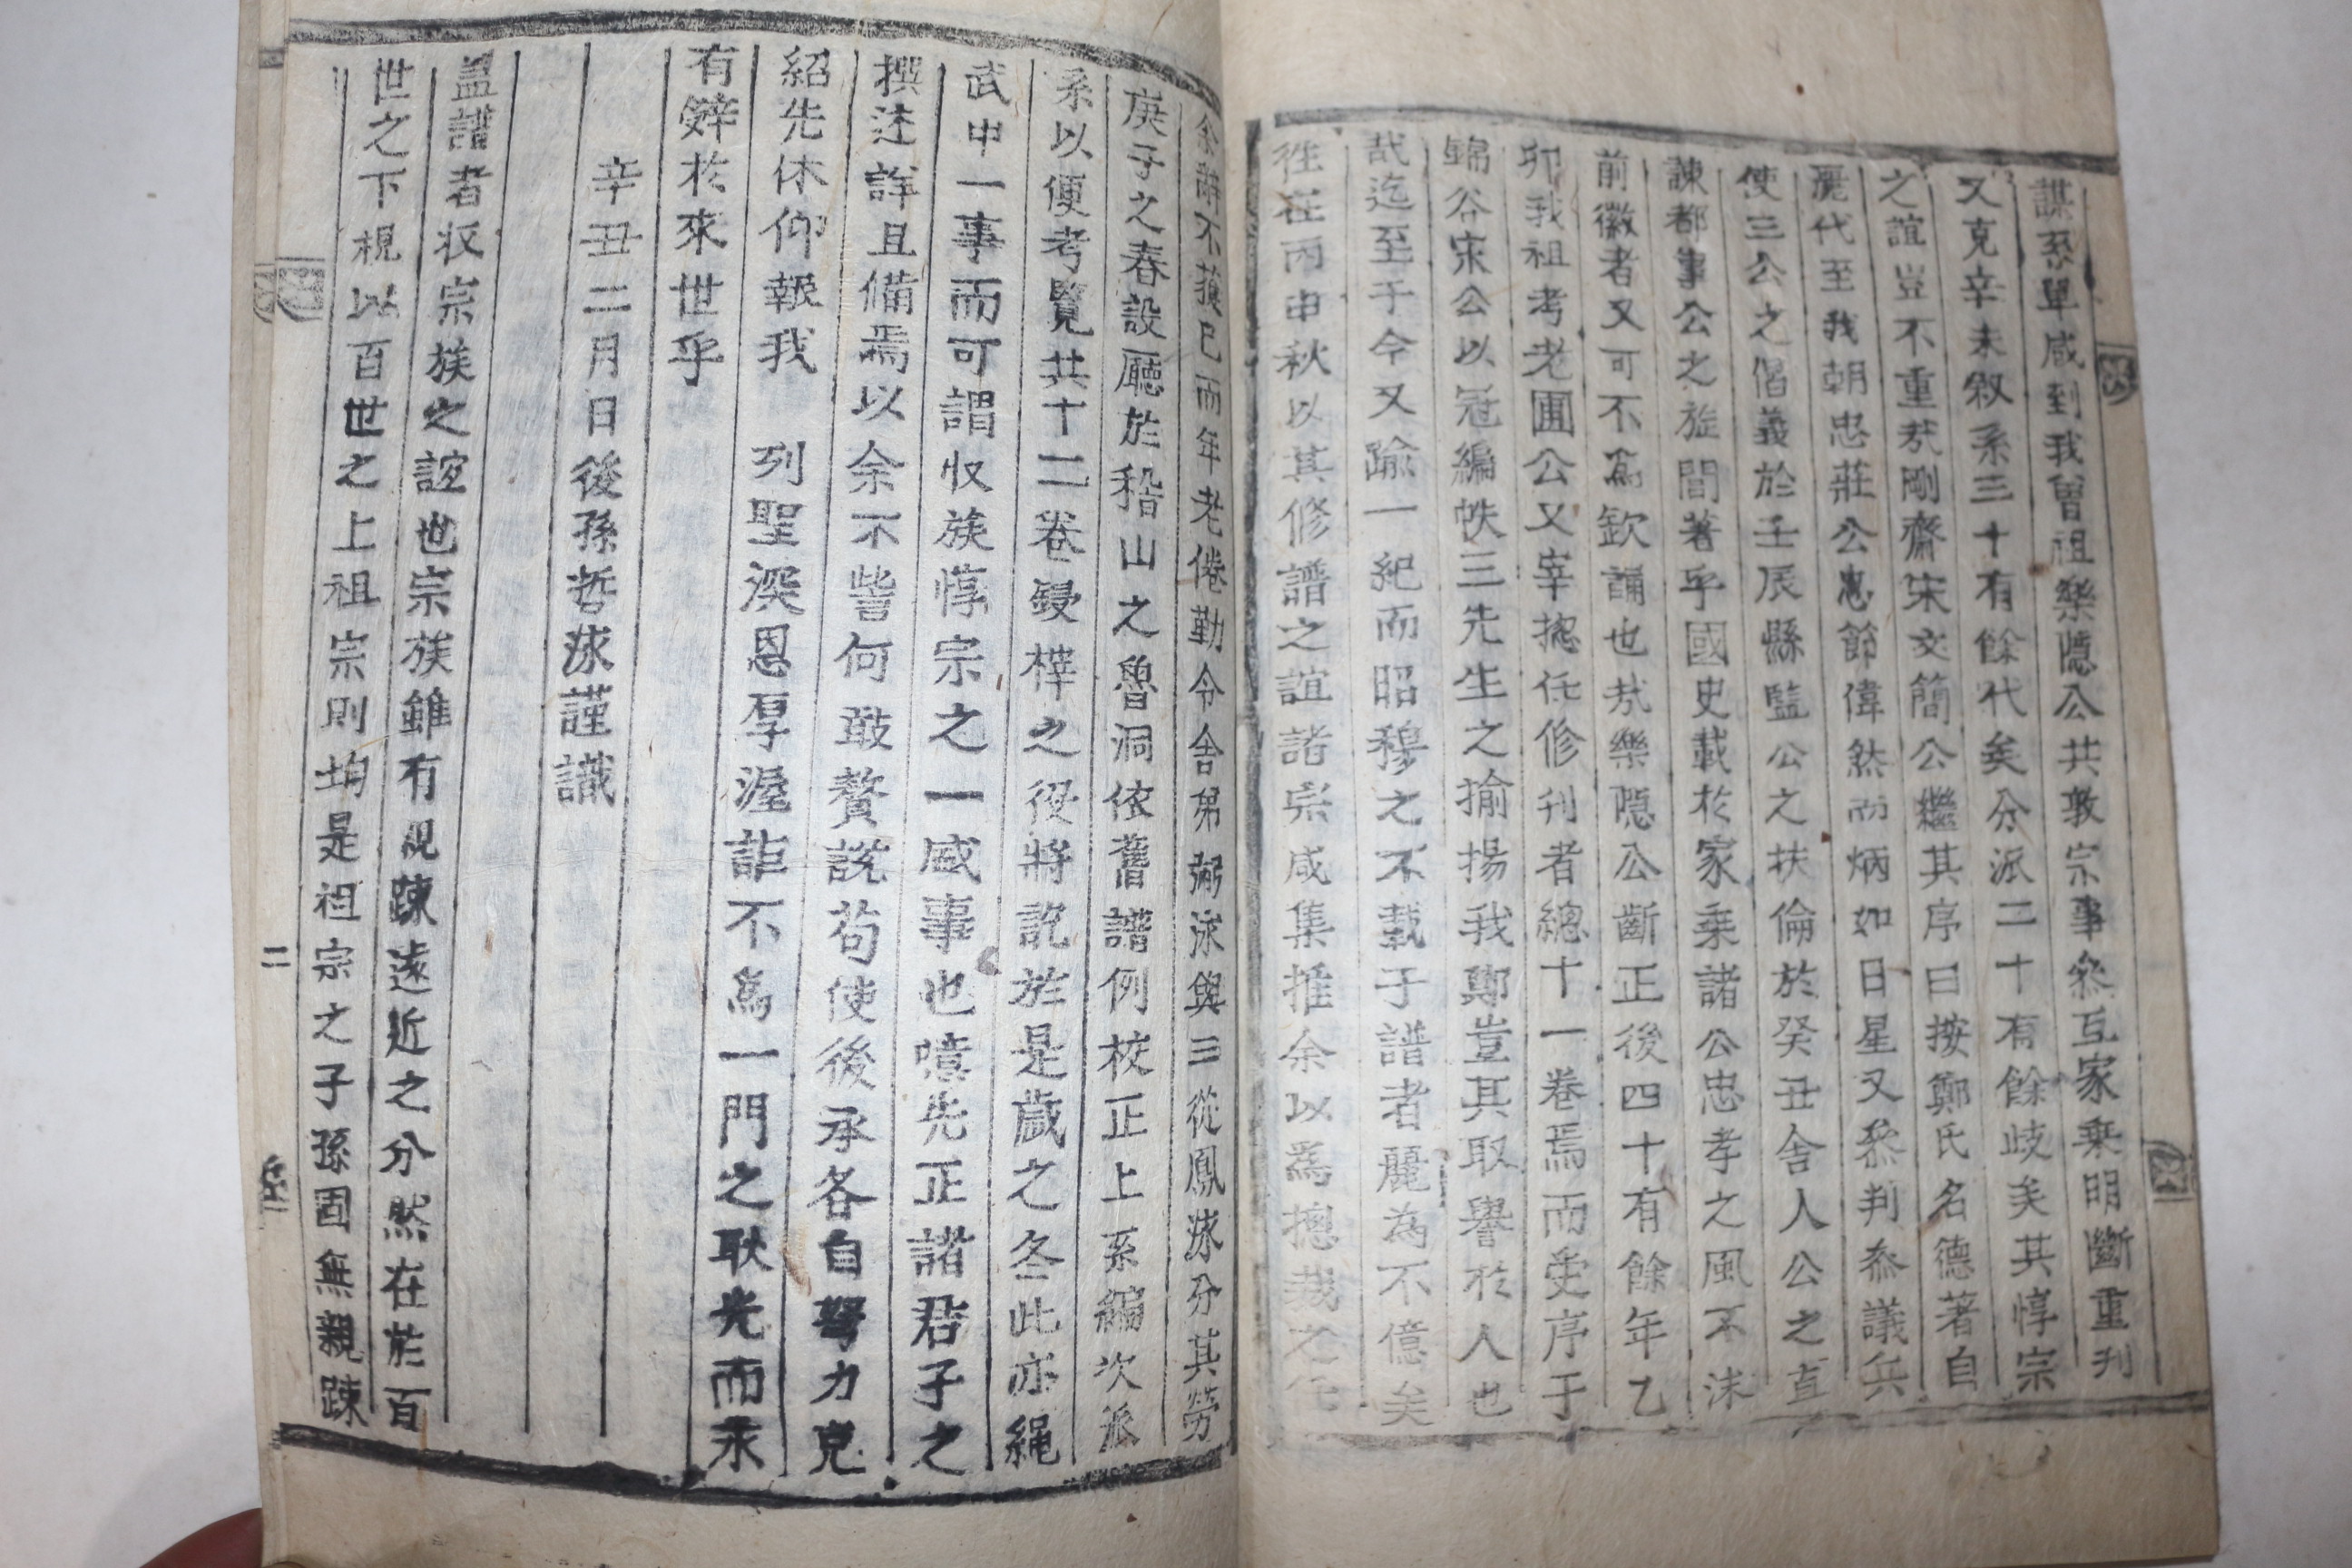 謀系單咸到我曾祖樂隱公共敦宗事叅互家乗明斷重刋
又克辛未敘系三十有餘代矣分派二十有餘歧矣其惇宗
之誼豈不重㢤剛齋宋文簡公繼其序曰按鄭氏名德著自
麗代至我朝忠莊公忠節偉然而炳如日星又叅判叅議兵
使三公之倡義於壬辰縣監公之扶倫於癸丑舎人公之直
諫都事公之旌閭著乎國史載於家乗諸公忠孝之風不沫
前徽者又可不爲欽誦也㢤樂隱公斷正後四十有餘年乙
卯我祖考老圃公又宰摠任修刋者總十一卷焉而受序于
錦谷宋公以冠編帙三先生之揄揚我鄭豈其取譽於人也
哉迄至于今又踰一紀而昭穆之不載于譜者麗為不億矣
徃在丙申秋以其修譜之誼諸宗咸集推余以爲摠裁之任
余辭不獲已而年老倦勤令舎弟弼泳與三從鳳泳分其勞
庚子之春設廳於稽山之魯洞依舊譜例校正上系編次派
系以便考覽共十二卷鋟梓之役將訖於是歲之冬此亦繩
武中一事而可謂收族惇宗之一咸事也噫先正諸君子之
撰述詳且備焉以余不訾何敢贅說苟使後承各自努力克
紹先休仰報我　列聖深恩厚渥詎不爲一門之耿光而永
有辝於來世乎
辛丑二月日後孫哲泳謹識
盖譜者収宗族之誼也宗族雖有親踈遠近之分然在於百
世之下視以百世之上祖宗則均是祖宗之子孫固無親踈
二